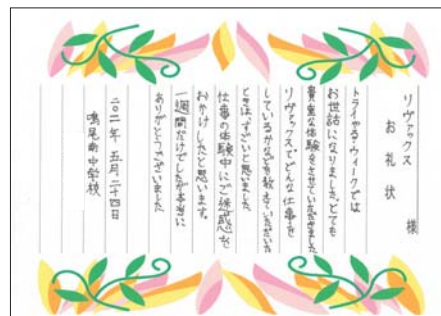 リヴァックス 様
お礼状
トライやるウィークでは
お世話になりました。とても
貴重な体験をさせていただきました。
リヴァックスでどんな仕事を
しているかなどを教えていただいた
ときは、すごいと思いました。
仕事の体験中にご迷惑を
おかけしたと思います。
一週間だけでしたが本当に
ありがとうございました
二〇二一年 五月 二十四日
鳴尾南中学校